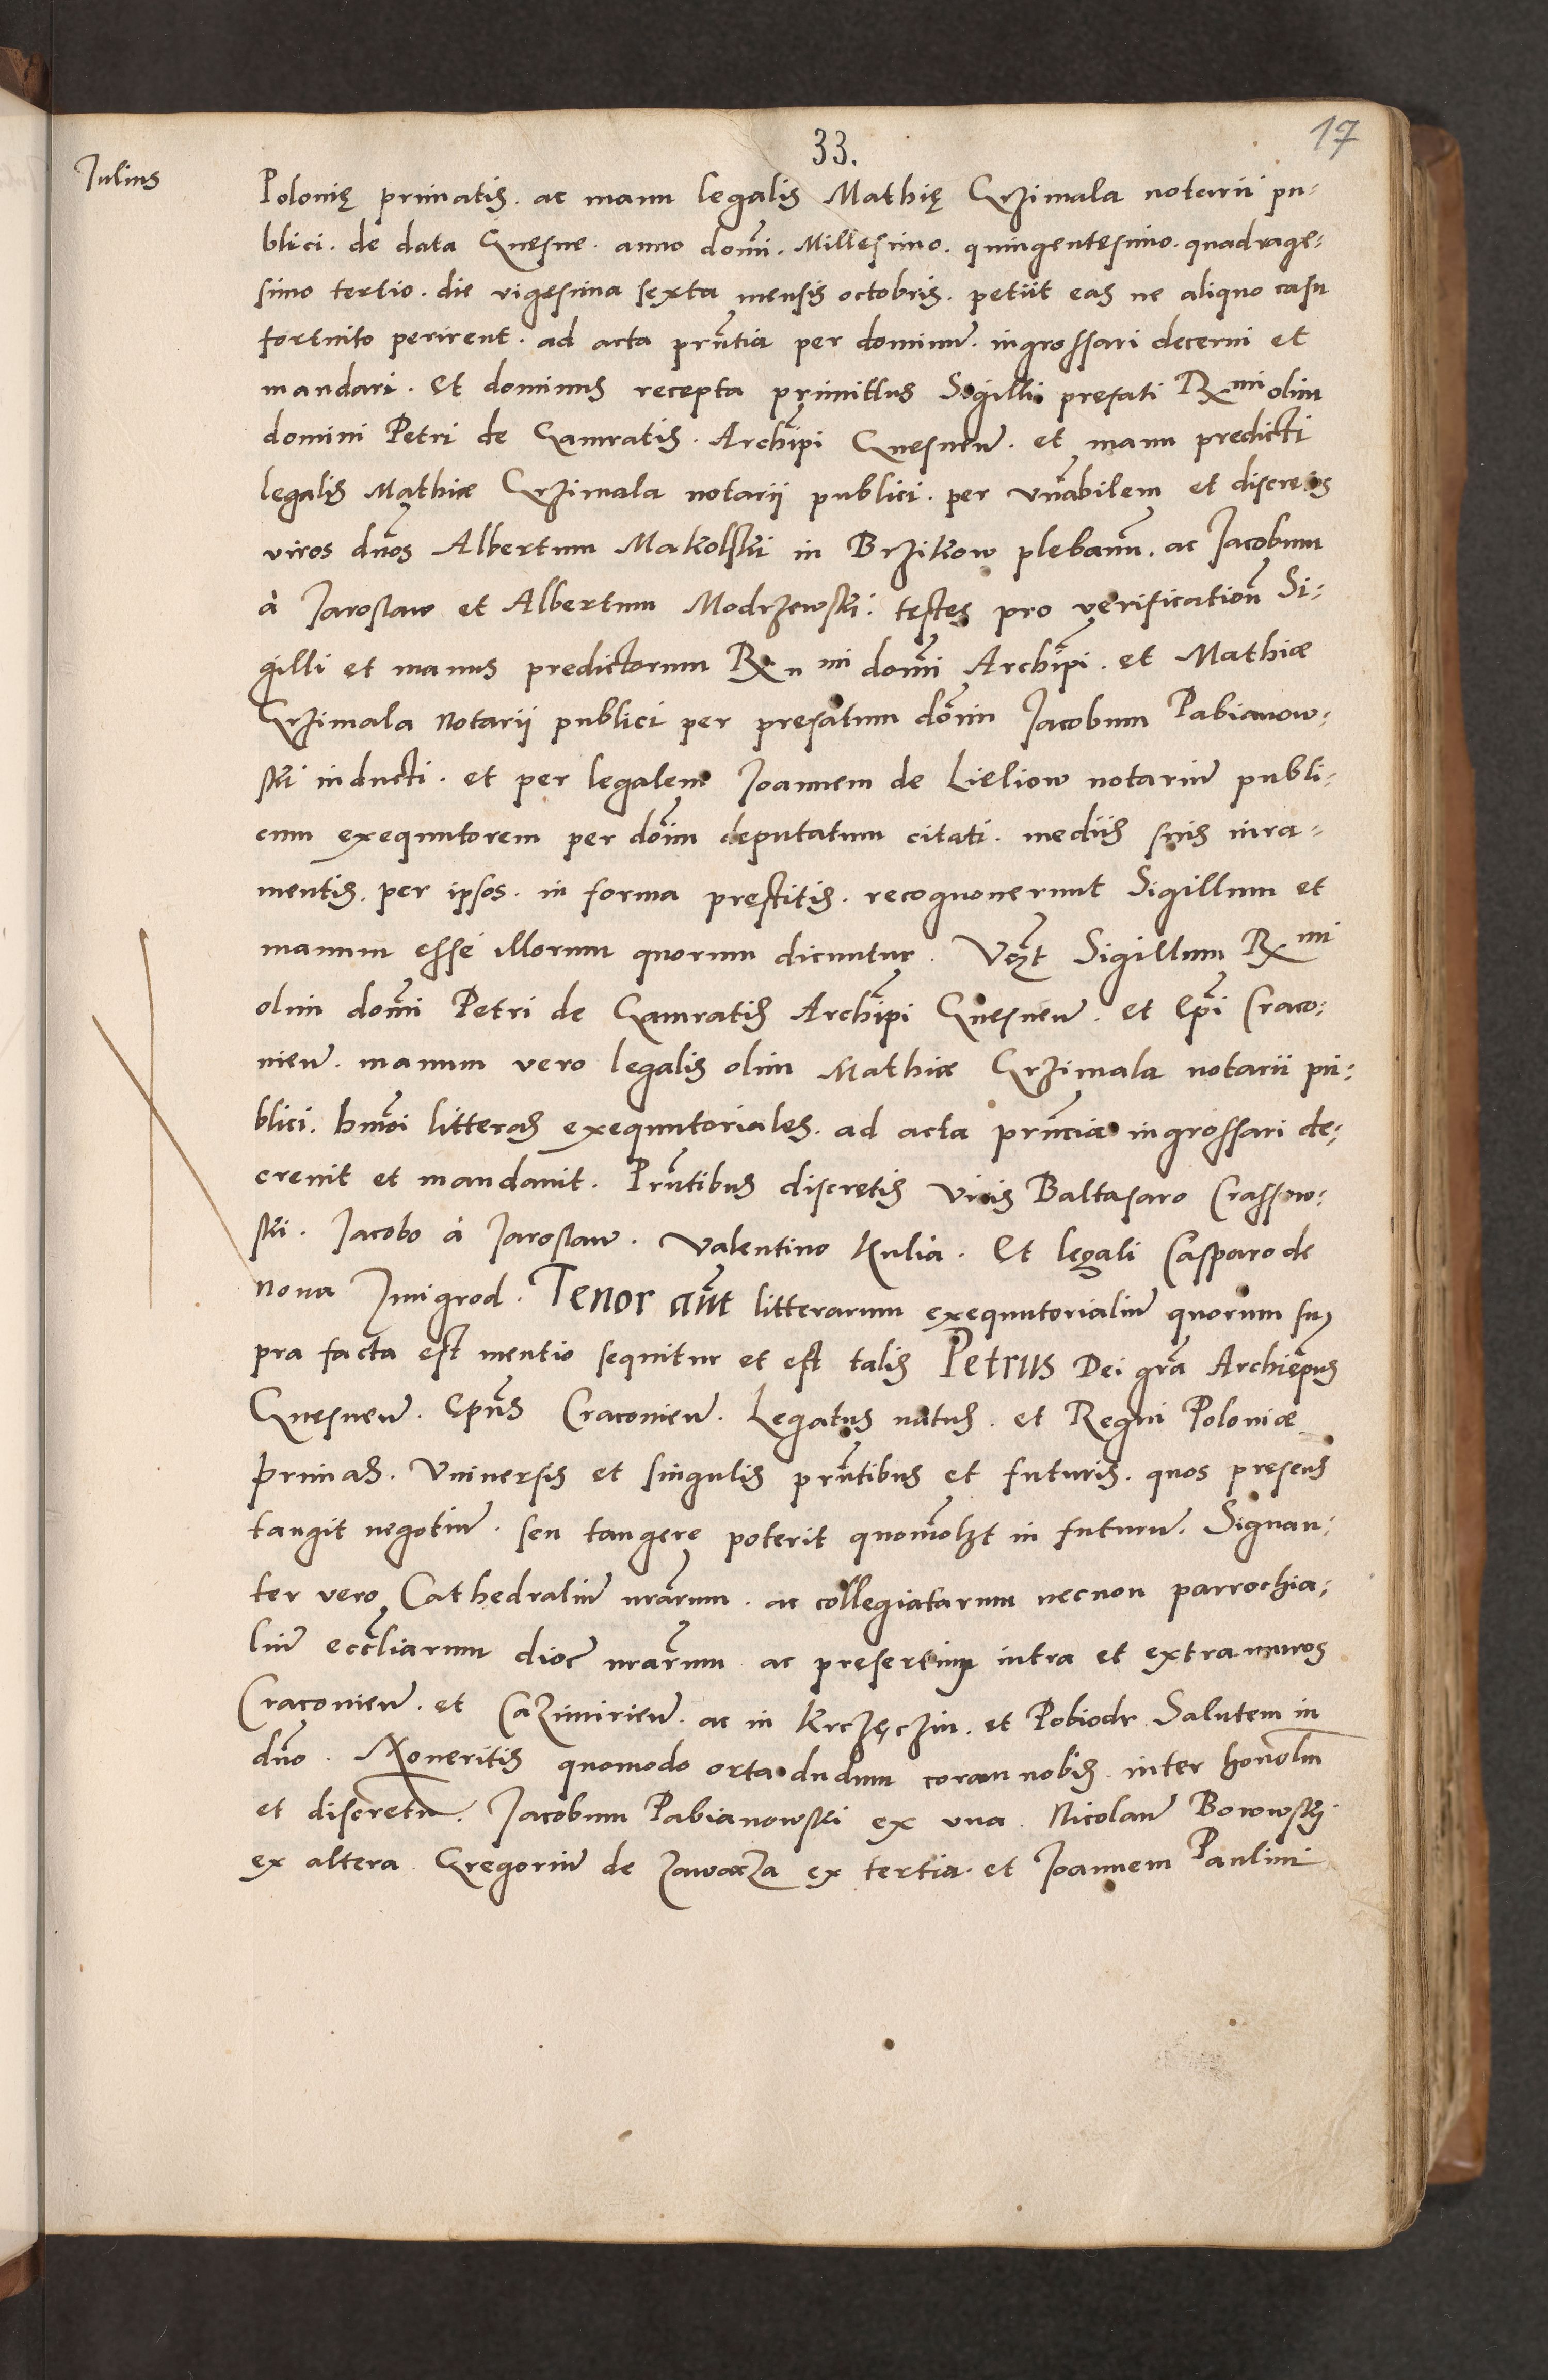 33.
17
Iulius
Polonię primatis. ac manu legalis Mathię Grzimala notarii pu-
blici. de data Gnesne. anno domi. Millesimo. quingentesimo. quadrage-
simo tertio. die vigesima sexta mensis octobris. petiit eas ne aliquo casu
fortuito perirent. ad acta prntia per dominu. ingrossari decerni et
mandari. Et dominus recepta primittus Sigilli prefati Rmi olim
domini Petri de Gamratis. Archiepi Gnesnen. et manu predicti
legalis Mathiæ Grzimala notarii publici. per vnabilem et discretos
viros dnos Albertum Makolski in Brzikow plebanu. ac Iacobum
à Iaroslaw et Albertum Modrzewski. testes pro verification Si-
gilli et manus predictorum Rmi domi Archiepi. et Mathiæ
Grzimala Notarii publici per prefatum domin Iacobum Pabianow-
ski inducti. et per legalem Ioannem de Lieliow notariu publi-
cum exequutorem per doim deputatum citati. mediis suis iura-
mentis. per ipsos. in forma prestitis. recognouerunt Sigillum et
manum esse illorum quorum dicuntur. Vczt Sigillum Rmi
olim domi Petri de Gamratis Archiepi Gnesnen. et Epi Craco-
nien. manum vero legalis olim Mathiæ Grzimala notarii pu-
blici. hmoi litteras exequutoriales. ad acta prnciæ ingrossari de-
creuit et mandauit. Prntibus discretis viris Baltasaro Crassow-
ski. Iacobo à Iaroslaw. Valentino Kulia. Et legali Casparo de
noua Zmigrod. Tenor aut litterarum exequutorialiu quorum su-
pra facta est mentio sequitur et est talis Petrus Dei gra Archiepus
Gnesnen. Epus Craconien. Legatus natus. et Regni Poloniæ
primas. Vniuersis et singulis prntibus et futuris. quos presens
tangit negotiu. seu tangere poterit quomolzt in futuru. Signan-
ter vero Cathedraliu nrarum. ac collegiatarum necnon parrochia-
liu eccliarum dioc nrarum ac presertim intra et extra muros
Craconien. et Cazimirien. ac in Krczęczin. et Pobiodr Salutem in
dno. Noueritis quomodo orta dudum coram nobis inter honolm
et discretu. Iacobum Pabianowski ex una. Nicolau Borowski
ex altera Gregoriu de Zawarza ex tertia. et Ioannem Paulini